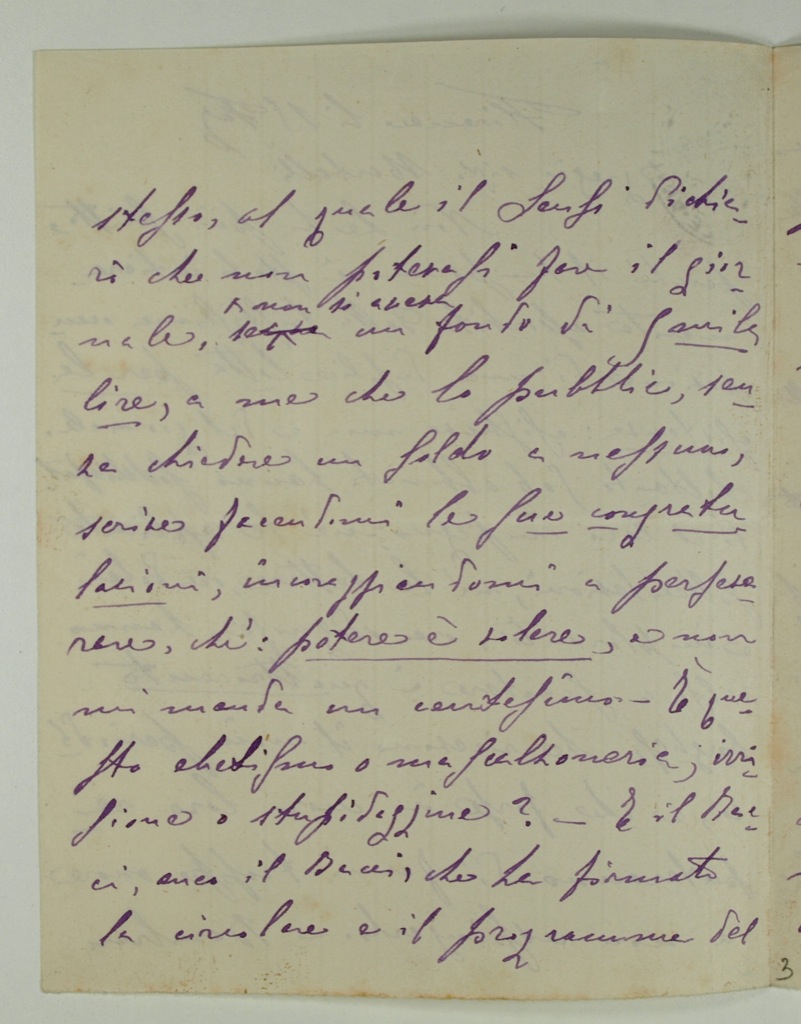 stesso, al quale il Sensi dichia-
rò che non potevasi fare il gior-
nale, se non si aveva un fondo di 5 mila
lire, a me che lo pubblic, sen-
za chiedere un soldo a nessuno,
scrive facendomi le sue congratu
lazioni, incoraggiandomi a perseve-
rare, chè: potere è volere, e non
mi manda un centesimo — È que-
sto o mascalzoneria; irri-
sione o stupidaggine? — E il Bac-
ci, anco il Bacci, che ha firmato
la circolare e il programma del
3